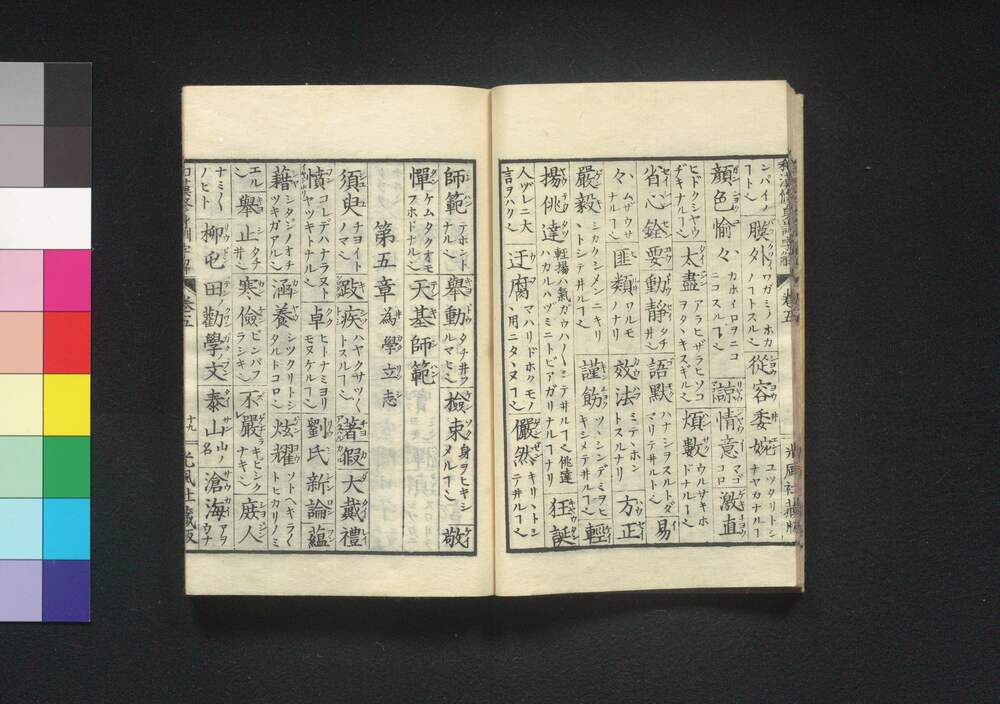 シバイノ﹁ト 膜外 ワガミノホカノ﹁トスル 從容委婉 ユツタリトシナヤカナル﹁
顔色愉々 カホイロヲニコニコスル﹁ 諒 情意 マゴコロ 激直
ヒドクシヤウヂキナル﹁ 太盡 アラヒザラヒソコヲタヽキスギル 煩數 ウルサキホドナル﹁
省心銓要 動靜 語黙 ハナシヲスルトダマリテヰルト 易
々 ムザウサナル﹁ 匪類 ワルモノナリ 效法 ミテホントスルナリ 方正
嚴毅 シカクシメンニキリヽトシテヰル﹁ 謹飭 ツヽシンデミヲヒキシメテヰル﹁ 輕
揚佻達 狂誕
人ヅレニ大言ヲハク 迂腐 マハリドホクモノノ用ニタヽヌ﹁ 儼然 キリヽトシテヰル﹁
師範 テホンナル 舉動 タチ井フルマヒ 檢束 身ヲヒキシメル﹁ 敬
憚 ケムタクオモフホドナル 天基師範
第五章 為學立志
須臾 チヨイトノマ 跂疾 ハヤクサツトスル﹁ 著假 大戴禮
憤 コレデハナラヌトイヤツキトナル 卓 ヒトナミヨリモヌケル﹁ 劉氏新論 蘊
藉 シタシノオチツキガアル 涵養 シツクリトシタルトコロ 炫耀 ソトヘキラくミエル
舉止 タチ井 寒儉 ビンバフラシキ 不嚴 ゲキビシクナキ 庶人
ナミくノヒト 柳屯田勸學文 泰山 山ノ名 滄海 アヲウナ
卷五
十九 光風社藏版